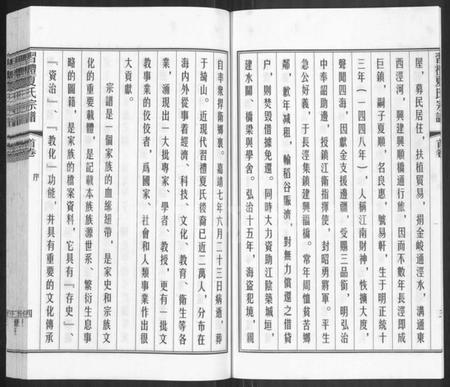 習禮夏氏宗譜
首卷
屋，募民居住，扶植貿易，捐金峻通涇水，溝通東
西涇河，興建興順橋通行旅，因而不數年長涇即成
巨鎮，嗣子夏順，名良惠，號易軒，生于明正統十
三年（一四四八年），人稱江南財神，恢擴大度，
聲聞四海，因獻金支援邊疆，受賜三品銜，明弘治
中奉詔助邊，授鎮江衛指揮使，封昭勇將軍。平生
急公好義，于長涇集鎮建興福橋。常年周恤貧苦鄉
鄰，歉年減租，輸稻谷賑濟，對無力償還之借貸
户，則焚毀借據免還。同時大力資助江陰築城垣，
建水關、橋梁與學舍。弘治十五年，海盗犯境，親
自率衆捍衛鄉寰。嘉靖七年六月二十三日病逝，葬
于綺山。近現代習禮夏氏後裔已近二萬人，分布在
海内外從事着經濟、科技、文化、教育、衛生等各
業，涌現出一大批專家、學者、教授，更有一批文
教事業的佼佼者，爲國家、社會和人類事業作出很
大貢獻。
宗譜是一個家族的血緣紐帶，是家史和宗族文
化的重要載體，是記載本族族源世系、繁衍生息事
略的圖籍，是家族的檔案資料，它具有『存史』、
『資治』、『教化』功能，并具有重要的文化傳承
習禮夏氏宗譜
首卷
序